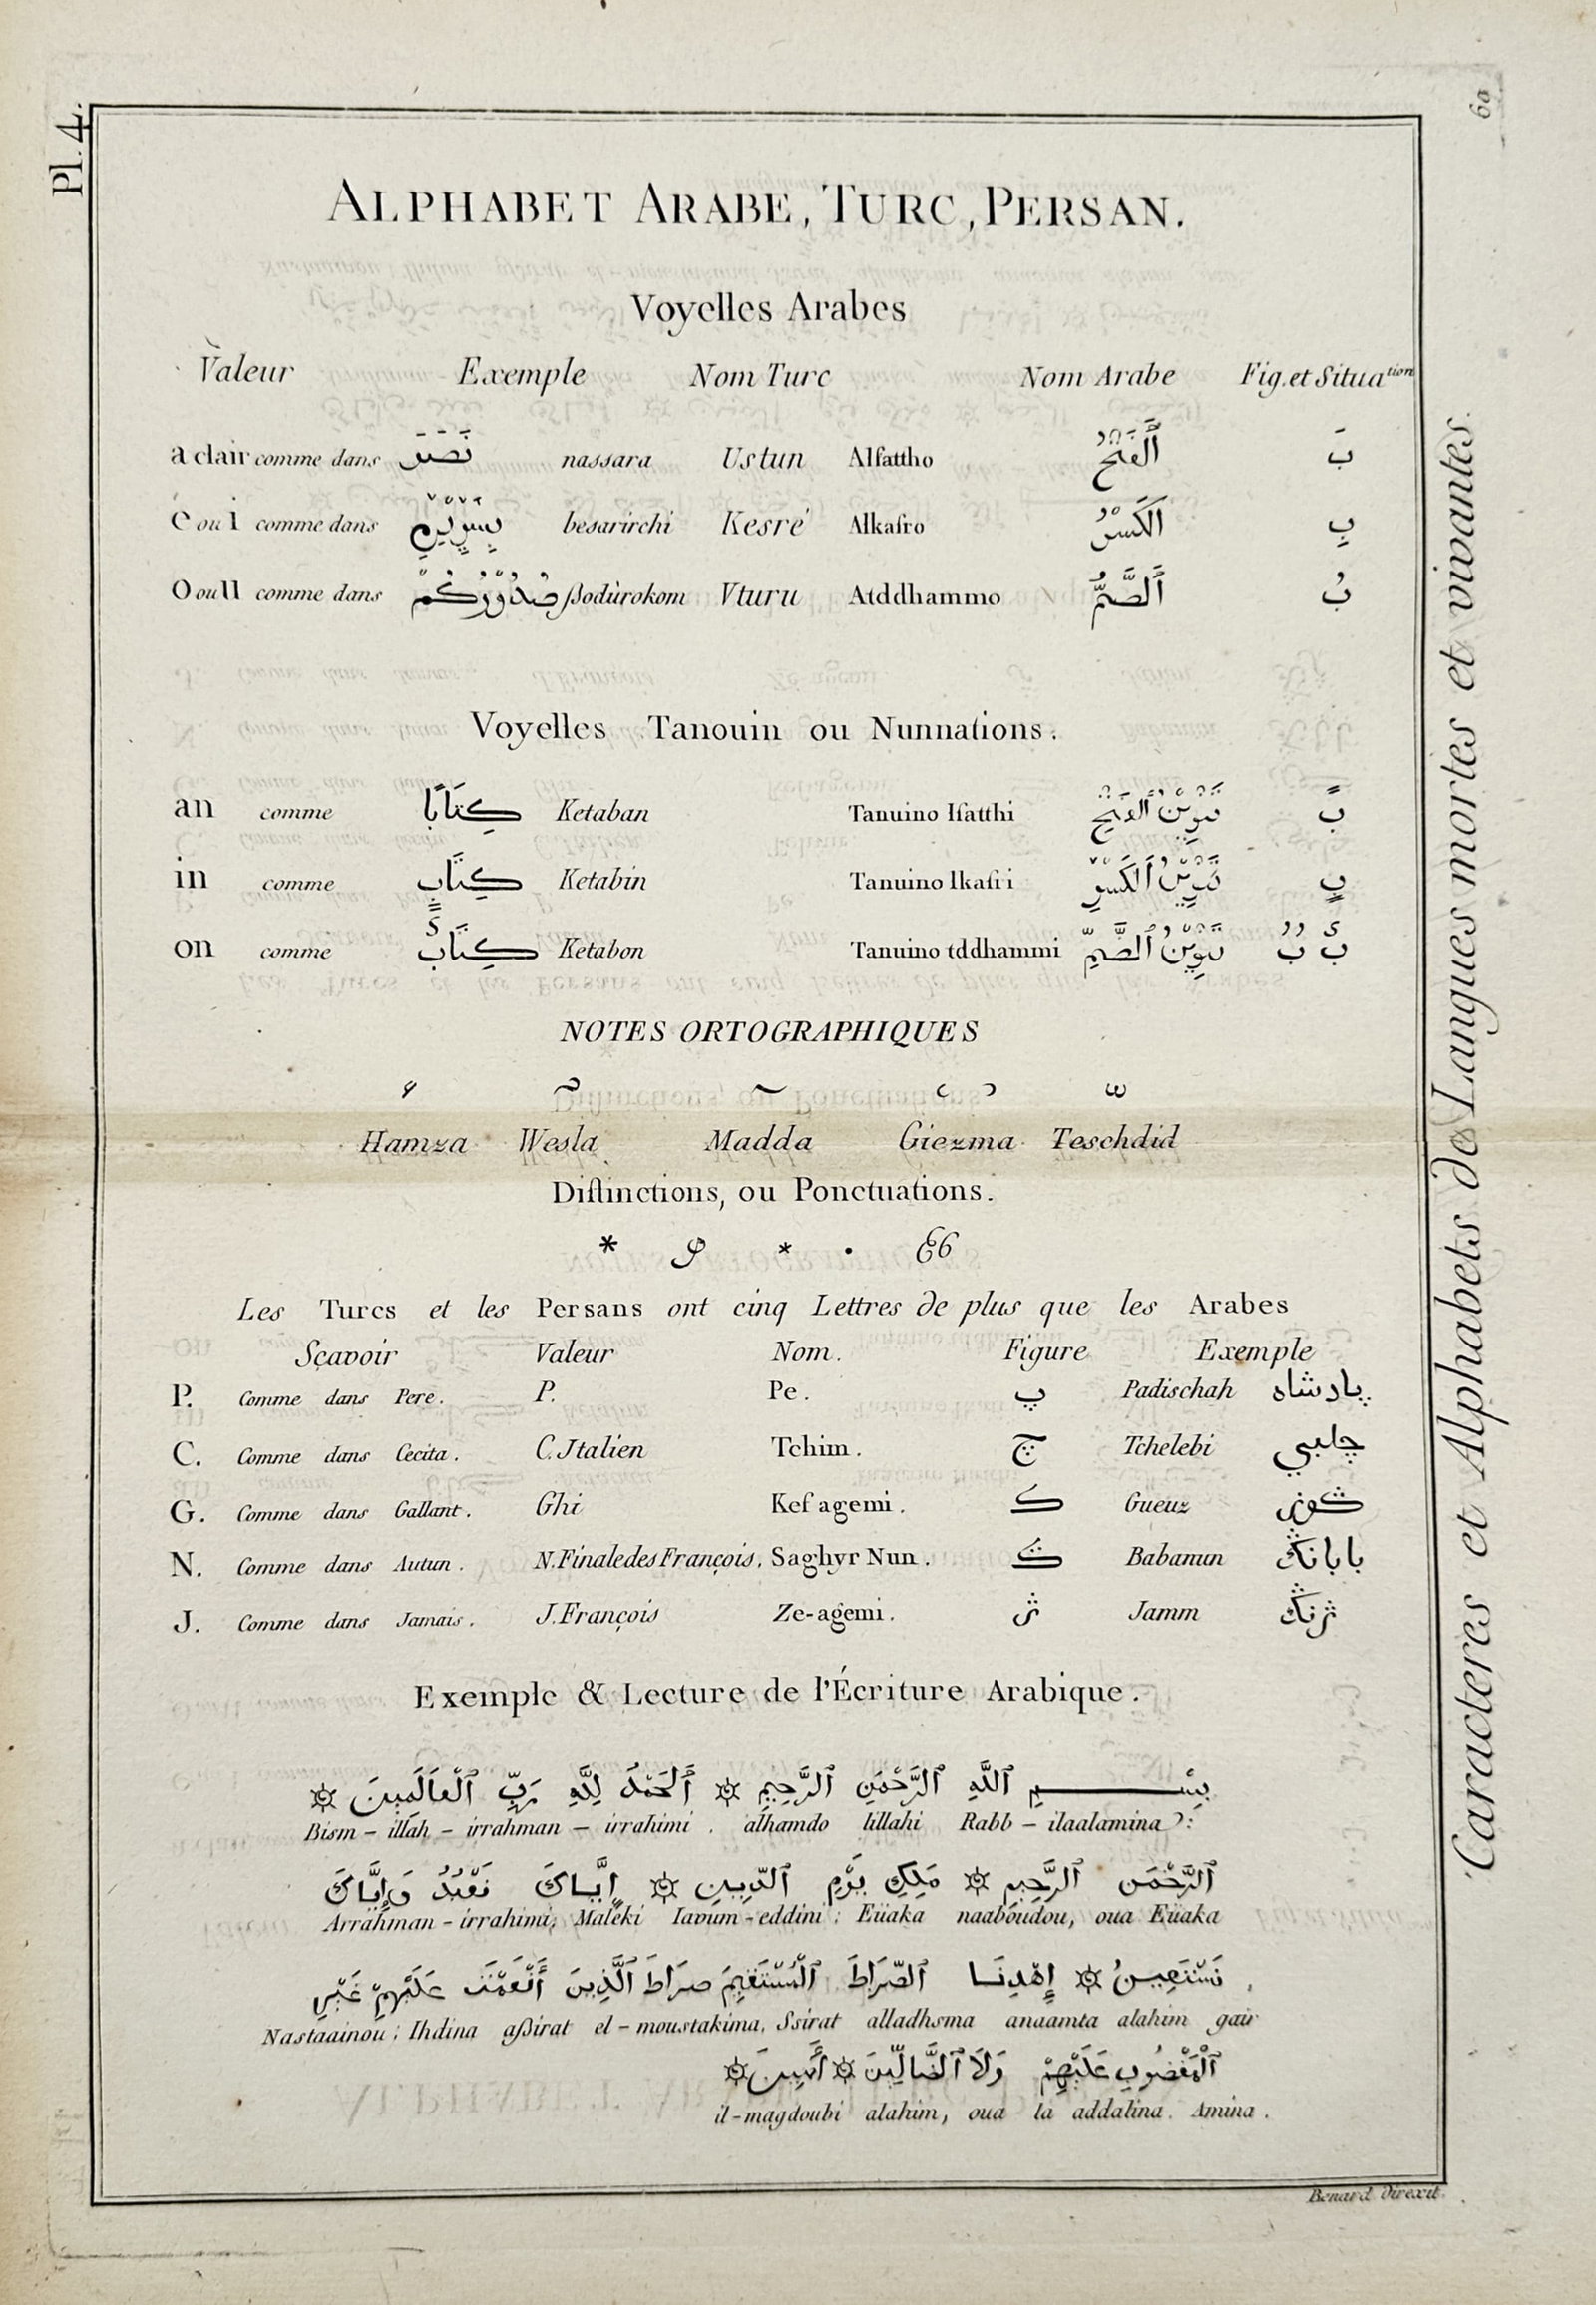 Pl. 4.
60
ALPHABET ARABE, TURC, PERSAN.
Voyelles Arabes
Valeur Exemple Nom Turc Nom Arabe Fig. et Situation
a clair comme dans نَصَرَ nassara Ustun Alfattho اَلْفَتْحُ بَ
é ou i comme dans besarirchi Kesré Alkasro اَلْكَسْرُ بِ
O ou U comme dans صُدُوْرُكُمْ ßodùrokom Vturu Atddhammo اَلضَّمُّ بُ
Voyelles Tanouin ou Nunnations.
an comme كِتَابًا Ketaban Tanuino lfatthi تَنوِيْنُ اْلفَتْحِ بً
in comme كِتَابٍ Ketabin Tanuino lkasri تَنوِيْنُ اَلْكَسْرِ بٍ
on comme كِتَابٌ Ketabon Tanuino tddhammi تَنوِيْنُ ٱلضَّمِّ بُُ بٌ
NOTES ORTOGRAPHIQUES
Hamza Wesla Madda Giezma Teschdid
Distinctions, ou Ponctuations.
Les Turcs et les Persans ont cinq Lettres de plus que les Arabes
Sçavoir Valeur Nom. Figure Exemple
P. Comme dans Pere. P. Pe. پ Padischah پادشاه
C. Comme dans Cecita. C. Jtalien Tchim. چ Tchelebi چلبي
G. Comme dans Gallant. Ghi Kef agemi. ك Gueuz
N. Comme dans Autun. N. Finale des François. Saghyr Nun. ڭ Babanun بابانڭ
J. Comme dans Jamais. J. François Ze-agemi. ژ Jamm ژنڭ
Exemple & Lecture de l'Écriture Arabique.
بِسْـــــمِ ٱللَّهِ ٱلرَّحْمَنِ ٱلرَّحِيمِ ۞ أَلْحَمْدُ لِلَّهِ رَبِّ ٱلْعَالَمِينَ ۞
Bism – illah – irrahman – irrahimi . alhamdo lillahi Rabb – ilaalamina :
ٱلرَّحْمَنِ ٱلرَّحِيمِ ۞ مَلِكِ يَوْمِ ٱلدِّينِ ۞ إِيَّاكَ نَعْبُدُ وَإِيَّاكَ
Arrahman – irrahimi, Maleki Iavum – eddini : Eüaka naaboudou, oua Eüaka
نَسْتَعِينُ ۞ إِهْدِنَا ٱلصِّرَاطَ ٱلْمُسْتَقِيمَ صِرَاطَ ٱلَّذِينَ أَنْعَمْتَ عَلَيْهِمْ غَيْرِ
Nastaainou ; Ihdina aßirat el – moustakima, Ssirat alladhsma anaamta alahim gair
ٱلْمَغْضُوبِ عَلَيْهِمْ وَلَا ٱلضَّالِّينَ ۞ أَمِينَ ۞
il – magdoubi alahim, oua la addalina. Amina.
Benard Direxit.
Caracteres et Alphabets de Langues mortes et vivantes.